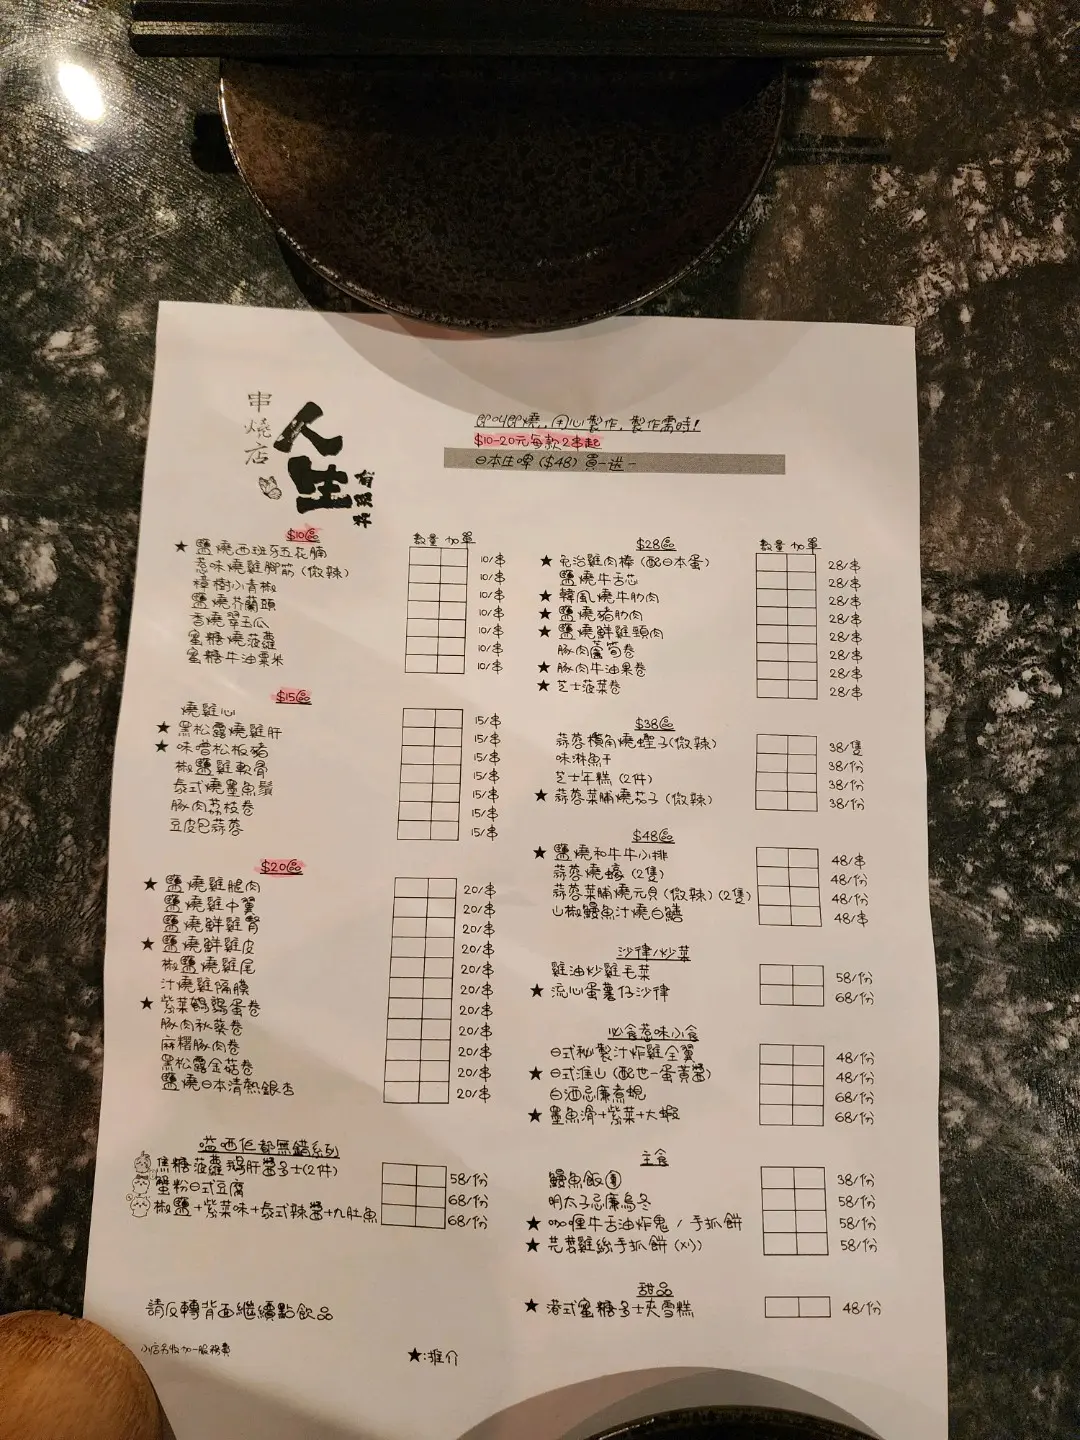 串燒店
人生
即叫即燒,用心製作,製作需時!
$10-20元每款2串起
日本生啤($48)買一送一
$10區
數量 加單
★ 鹽燒西班牙五花腩 10/串
惹味燒雞腳筋(微辣) 10/串
樟樹小青椒 10/串
鹽燒芥蘭頭 10/串
香燒翠玉瓜 10/串
蜜糖燒菠蘿 10/串
蜜糖牛油粟米 10/串
$15區
燒雞心 15/串
★ 黑松露燒雞肝 15/串
★ 味噌松板豬 15/串
椒鹽雞軟骨 15/串
泰式燒墨魚鬚 15/串
豚肉荔枝卷 15/串
豆皮包蒜蓉 15/串
$20區
★ 鹽燒雞腿肉 20/串
鹽燒雞中翼 20/串
鹽燒鮮雞腎 20/串
★ 鹽燒鮮雞皮 20/串
椒鹽燒雞尾 20/串
汁燒雞隔膜 20/串
★ 紫菜鵪鶉蛋卷 20/串
豚肉秋葵卷 20/串
麻糬豚肉卷 20/串
黑松露金菇卷 20/串
鹽燒日本清熱銀杏 20/串
嗌晒佢都無錯系列
焦糖菠蘿鵝肝醬多士(2件) 58/份
蟹粉日式豆腐 68/份
椒鹽+紫菜味+泰式辣醬+九肚魚 68/份
請反轉背面繼續點飲品
小店另收加一服務費
★:推介
$28區
數量 加單
★ 免治雞肉棒(配日本蛋) 28/串
鹽燒牛舌芯 28/串
★ 韓風燒牛肋肉 28/串
★ 鹽燒豬肋肉 28/串
★ 鹽燒鮮雞頸肉 28/串
豚肉蘆筍卷 28/串
★ 豚肉牛油果卷 28/串
★ 芝士菠菜卷 28/串
$38區
蒜蓉欖角燒蟶子(微辣) 38/隻
味淋魚干 38/份
芝士年糕(2件) 38/份
★ 蒜蓉菜脯燒茄子(微辣) 38/份
$48區
★ 鹽燒和牛牛小排 48/串
蒜蓉燒蠔(2隻) 48/份
蒜蓉菜脯燒元貝(微辣)(2隻) 48/份
山椒鰻魚汁燒白鱔 48/串
沙律/炒菜
雞油炒雞毛菜 58/份
★ 流心蛋薯仔沙律 68/份
必食惹味小食
日式秘製汁炸雞全翼 48/份
★ 日式淮山(配世一蛋黃醬) 48/份
白酒忌廉煮蜆 68/份
★ 墨魚滑+紫菜+大蝦 68/份
主食
鰻魚飯 38/份
明太子忌廉烏冬 58/份
★ 咖喱牛舌油炸鬼/手抓餅 58/份
★ 芫荽雞絲手抓餅(凍) 58/份
甜品
★ 港式蜜糖多士夾雪糕 48/份